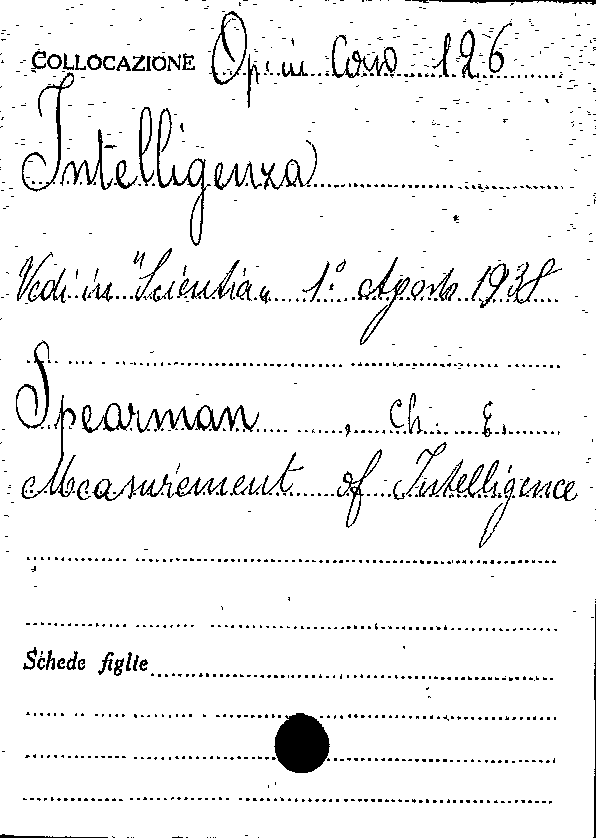 COLLOCAZIONE Op. in Corso 126
Intelligenza
Vedi in "Scientia" 1° Agosto 1938
Spearman, Ch. E.
Measurement of Intelligence
Schede figlie